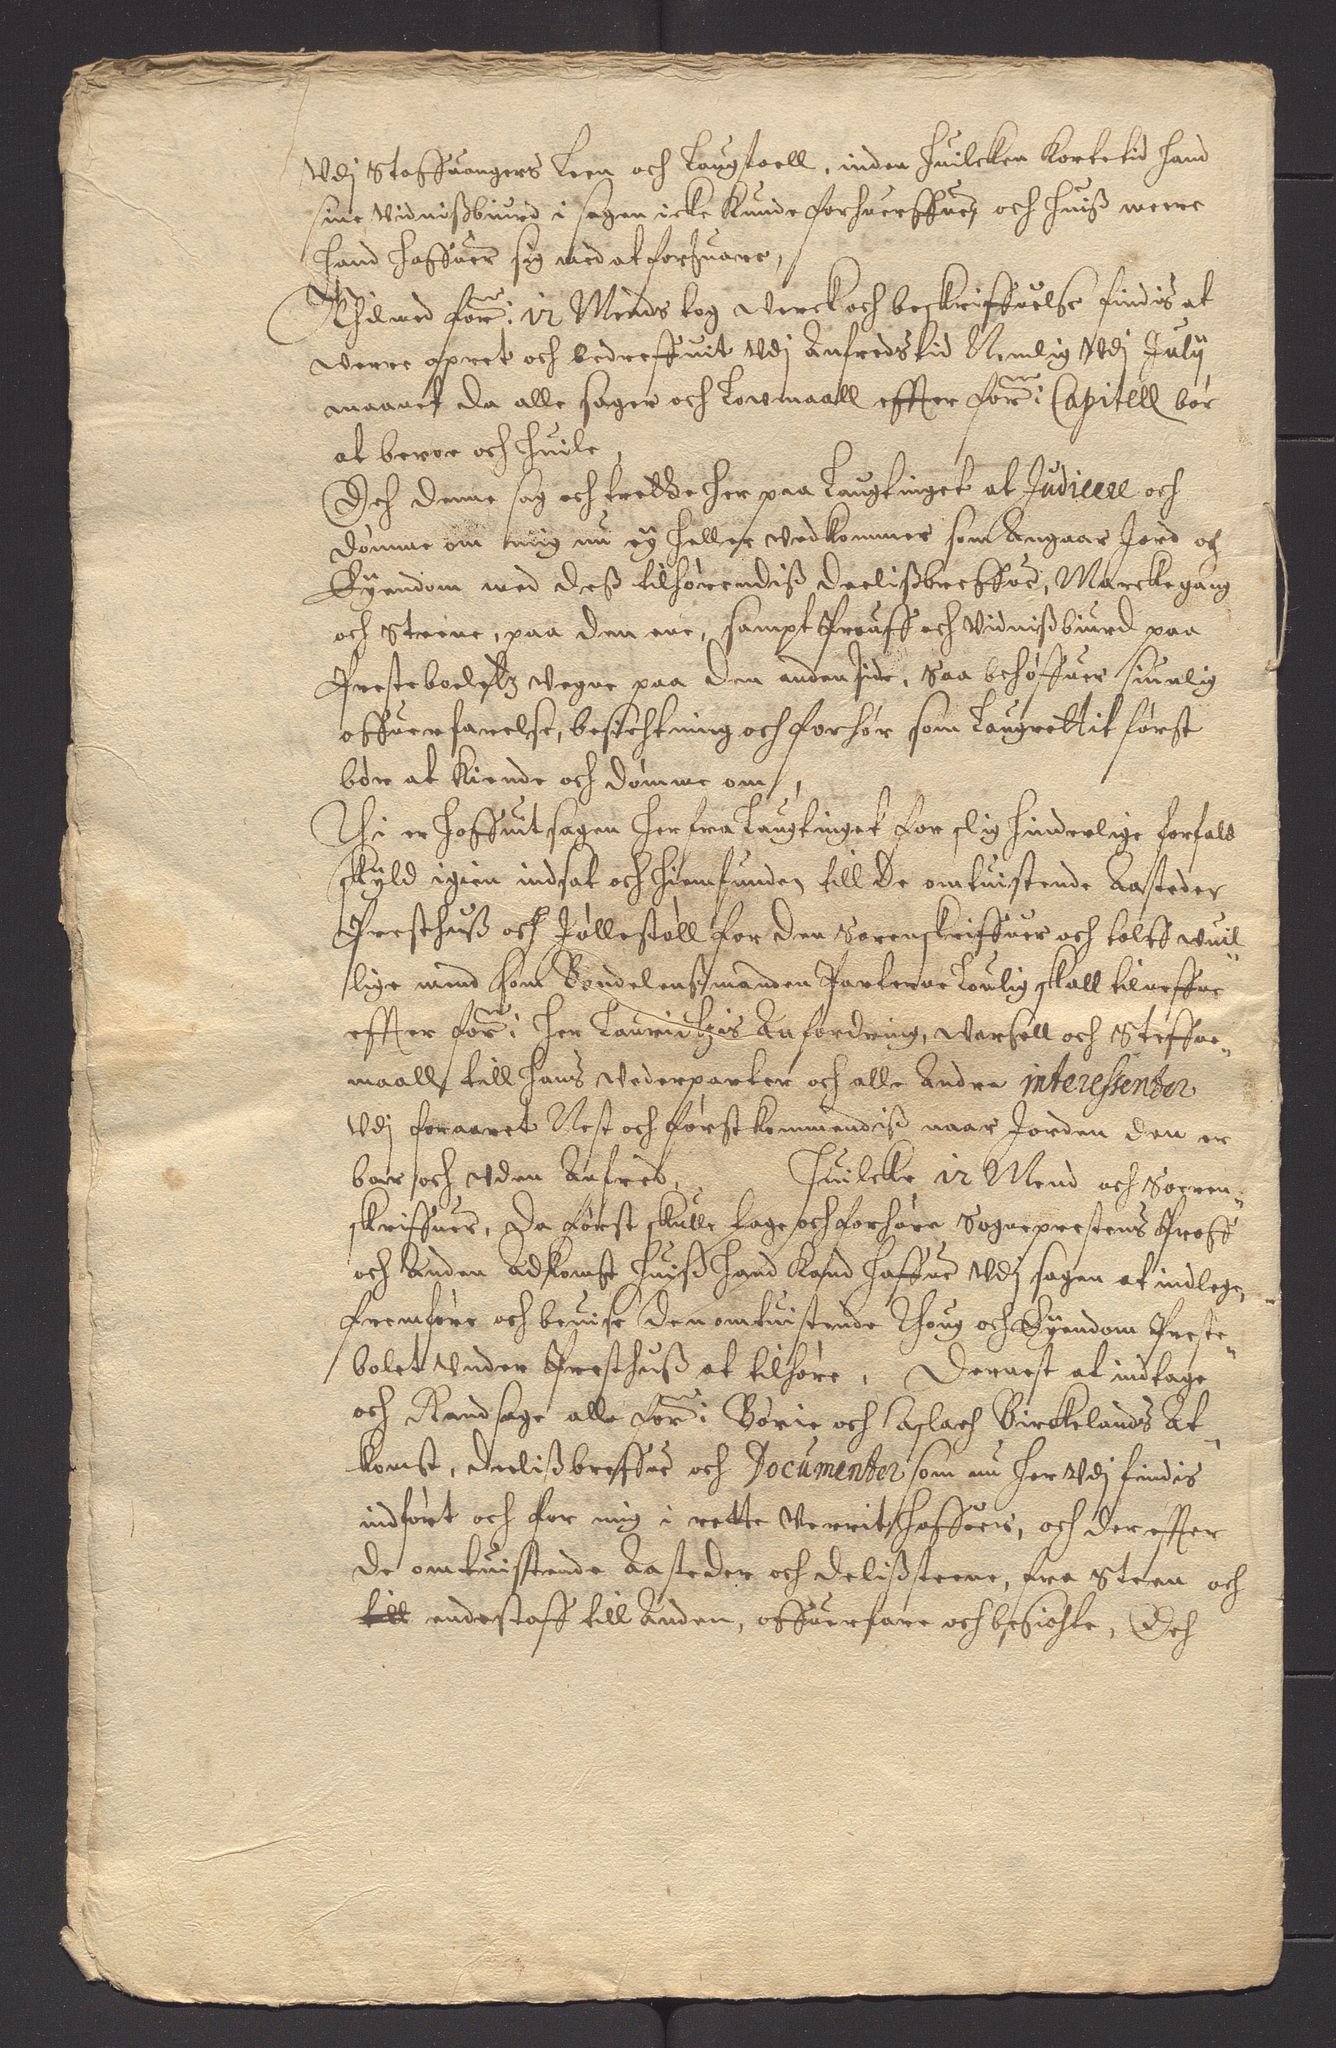 Vdj Staffuangers Leen och Laugstoell, inden huilcken korte tid hand
sine vidnißbiurd i sagen icke kunde forhuerffue, och huiß mere
hand haffuer sig med at forsuare,
Thilmed for:ne 12 Mends tog verck och beskriffuelse findis at
verre opret och bedreffuit vdj Anfredstid Nemlig vdj Julij
maanet da alle sager och Lowmaall effter for:ne Capitell bør
at beroe och huile,
Och denne sag och trette her paa Laugtinget at Judicere och
dømme om mig nu ey heller vedkommer som angaar Jord och
Eyendom med deß tilhørendiß deelißbreffue, Marckegang
och Steene, paa den ene, sampt Prouff och Vidnißbiurd paa
Presteboelitz vegne paa den anden side, Saa behøffues siunlig
offuerfarelse, besichtning och forhør som Laugrettit først
bør at kiende och dømme om,
Thi er hoffuitsagen her fra Laugtinget for slig hinderlige forfald
skyld igien indsat och hiemfunden till de omtuistende Aasteder
Presthuß och Jøllestøll for den Sorenskriffuer och tolff wuil„
lige mend som Bondelensmanden Parterne Loulig skall tilneffne
effter for:ne her Lauridtzis Anfordring, varsell och Steffne„
maall till hans vederparter och alle andre interessenter
vdj foraaret Nest och førstkommendiß naar Jorden den er
bar och vden Anfred, Huilcke 12 Mend och Soeren„
skriffuer, da først skulle tage och forhøre Sogneprestens Proff
och anden adkomst huiß hand kand haffue vdj sagen at indlege,
fremføre och beuise den omtuistende Thoug och Eyendom Preste„
bolet vnder Presthuß at tilhøre, Dernest at indtage
och Randsage alle for:ne Børie och Aslach Birckelands At„
komst, deelißbreffue och Documenter som nu her vdj findis
indført och for mig i rette verrit haffuer, och der effter
de omtuistende Aasteder och delißsteene, fra Steen och
till endestaff till anden, offuerfare och besichte, Och